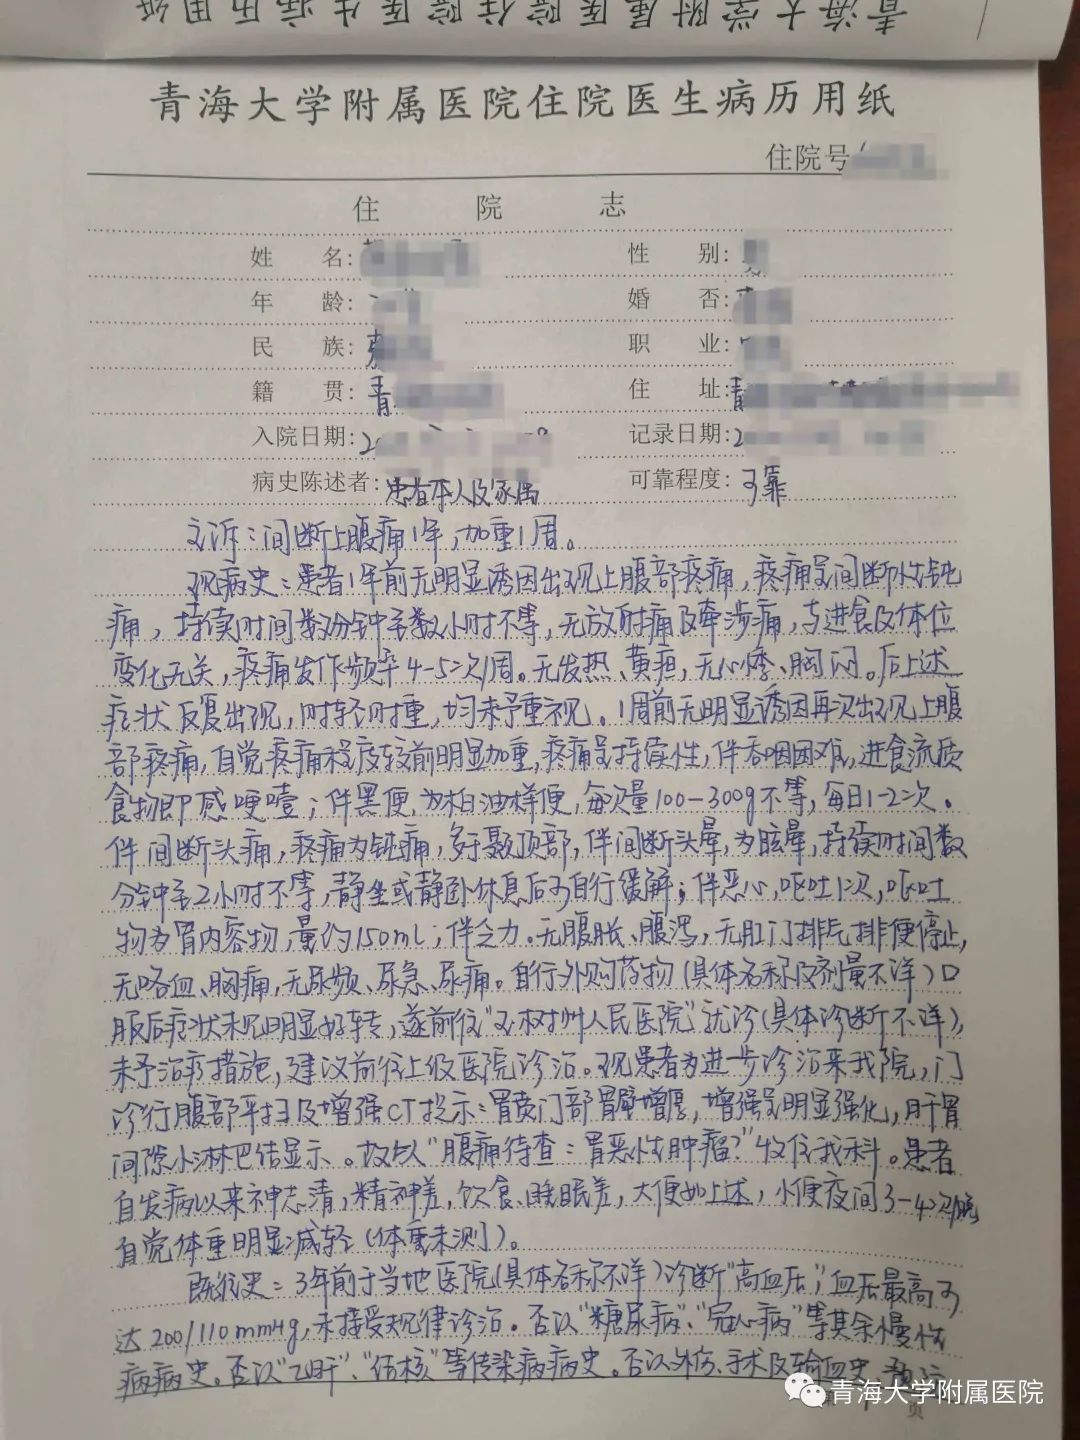 青海大学附属医院住院医生病历用纸
青海大学附属医院住院医生病历用纸
住院号
住 院 志
姓 名: 性 别:
年 龄: 婚 否:
民 族: 职 业:
籍 贯: 青 住 址: 青
入院日期: 2 记录日期: 2
病史陈述者: 患者本人及家属 可靠程度: 可靠
主诉:间断上腹痛1年,加重1周。
现病史:患者1年前无明显诱因出现上腹部疼痛,疼痛呈间断性钝
痛,持续时间数分钟至数小时不等,无放射痛及牵涉痛,与进食及体位
变化无关,疼痛发作频率4-5次/周。无发热、黄疸,无心悸、胸闷。后上述
症状反复出现,时轻时重,均未予重视。1周前无明显诱因再次出现上腹
部疼痛,自觉疼痛程度较前明显加重,疼痛呈持续性,伴吞咽困难,进食流质
食物即感哽噎;伴黑便,为柏油样便,每次量100-300g不等,每日1-2次。
伴间断头痛,疼痛为钝痛,多于颞顶部,伴间断头晕,为眩晕,持续时间数
分钟至2小时不等,静坐或静卧休息后可自行缓解;伴恶心,呕吐1次,呕吐
物为胃内容物,量约150mL;伴乏力。无腹胀、腹泻,无肛门排气排便停止,
无咯血、胸痛,无尿频、尿急、尿痛。自行外购药物(具体名称及剂量不详)口
服后症状未见明显好转,遂前往“玉树州人民医院”就诊(具体诊断不详),
未予治疗措施,建议前往上级医院诊治。现患者为进一步诊治来我院,门
诊行腹部平扫及增强CT提示:胃贲门部胃壁增厚,增强呈明显强化,肝胃
间隙小淋巴结显示。故以“腹痛待查:胃恶性肿瘤?”收住我科。患者
自发病以来神志清,精神差,饮食、睡眠差,大便如上述,小便夜间3-4次/晚
自觉体重明显减轻(体重未测)。
既往史:3年前于当地医院(具体名称不详)诊断“高血压”,血压最高可
达200/110mmHg,未接受规律诊治。否认“糖尿病”、“冠心病”等其余慢性
病病史。否认“乙肝”、“结核”等传染病病史。否认外伤、手术及输血史,预
第1页
青海大学附属医院